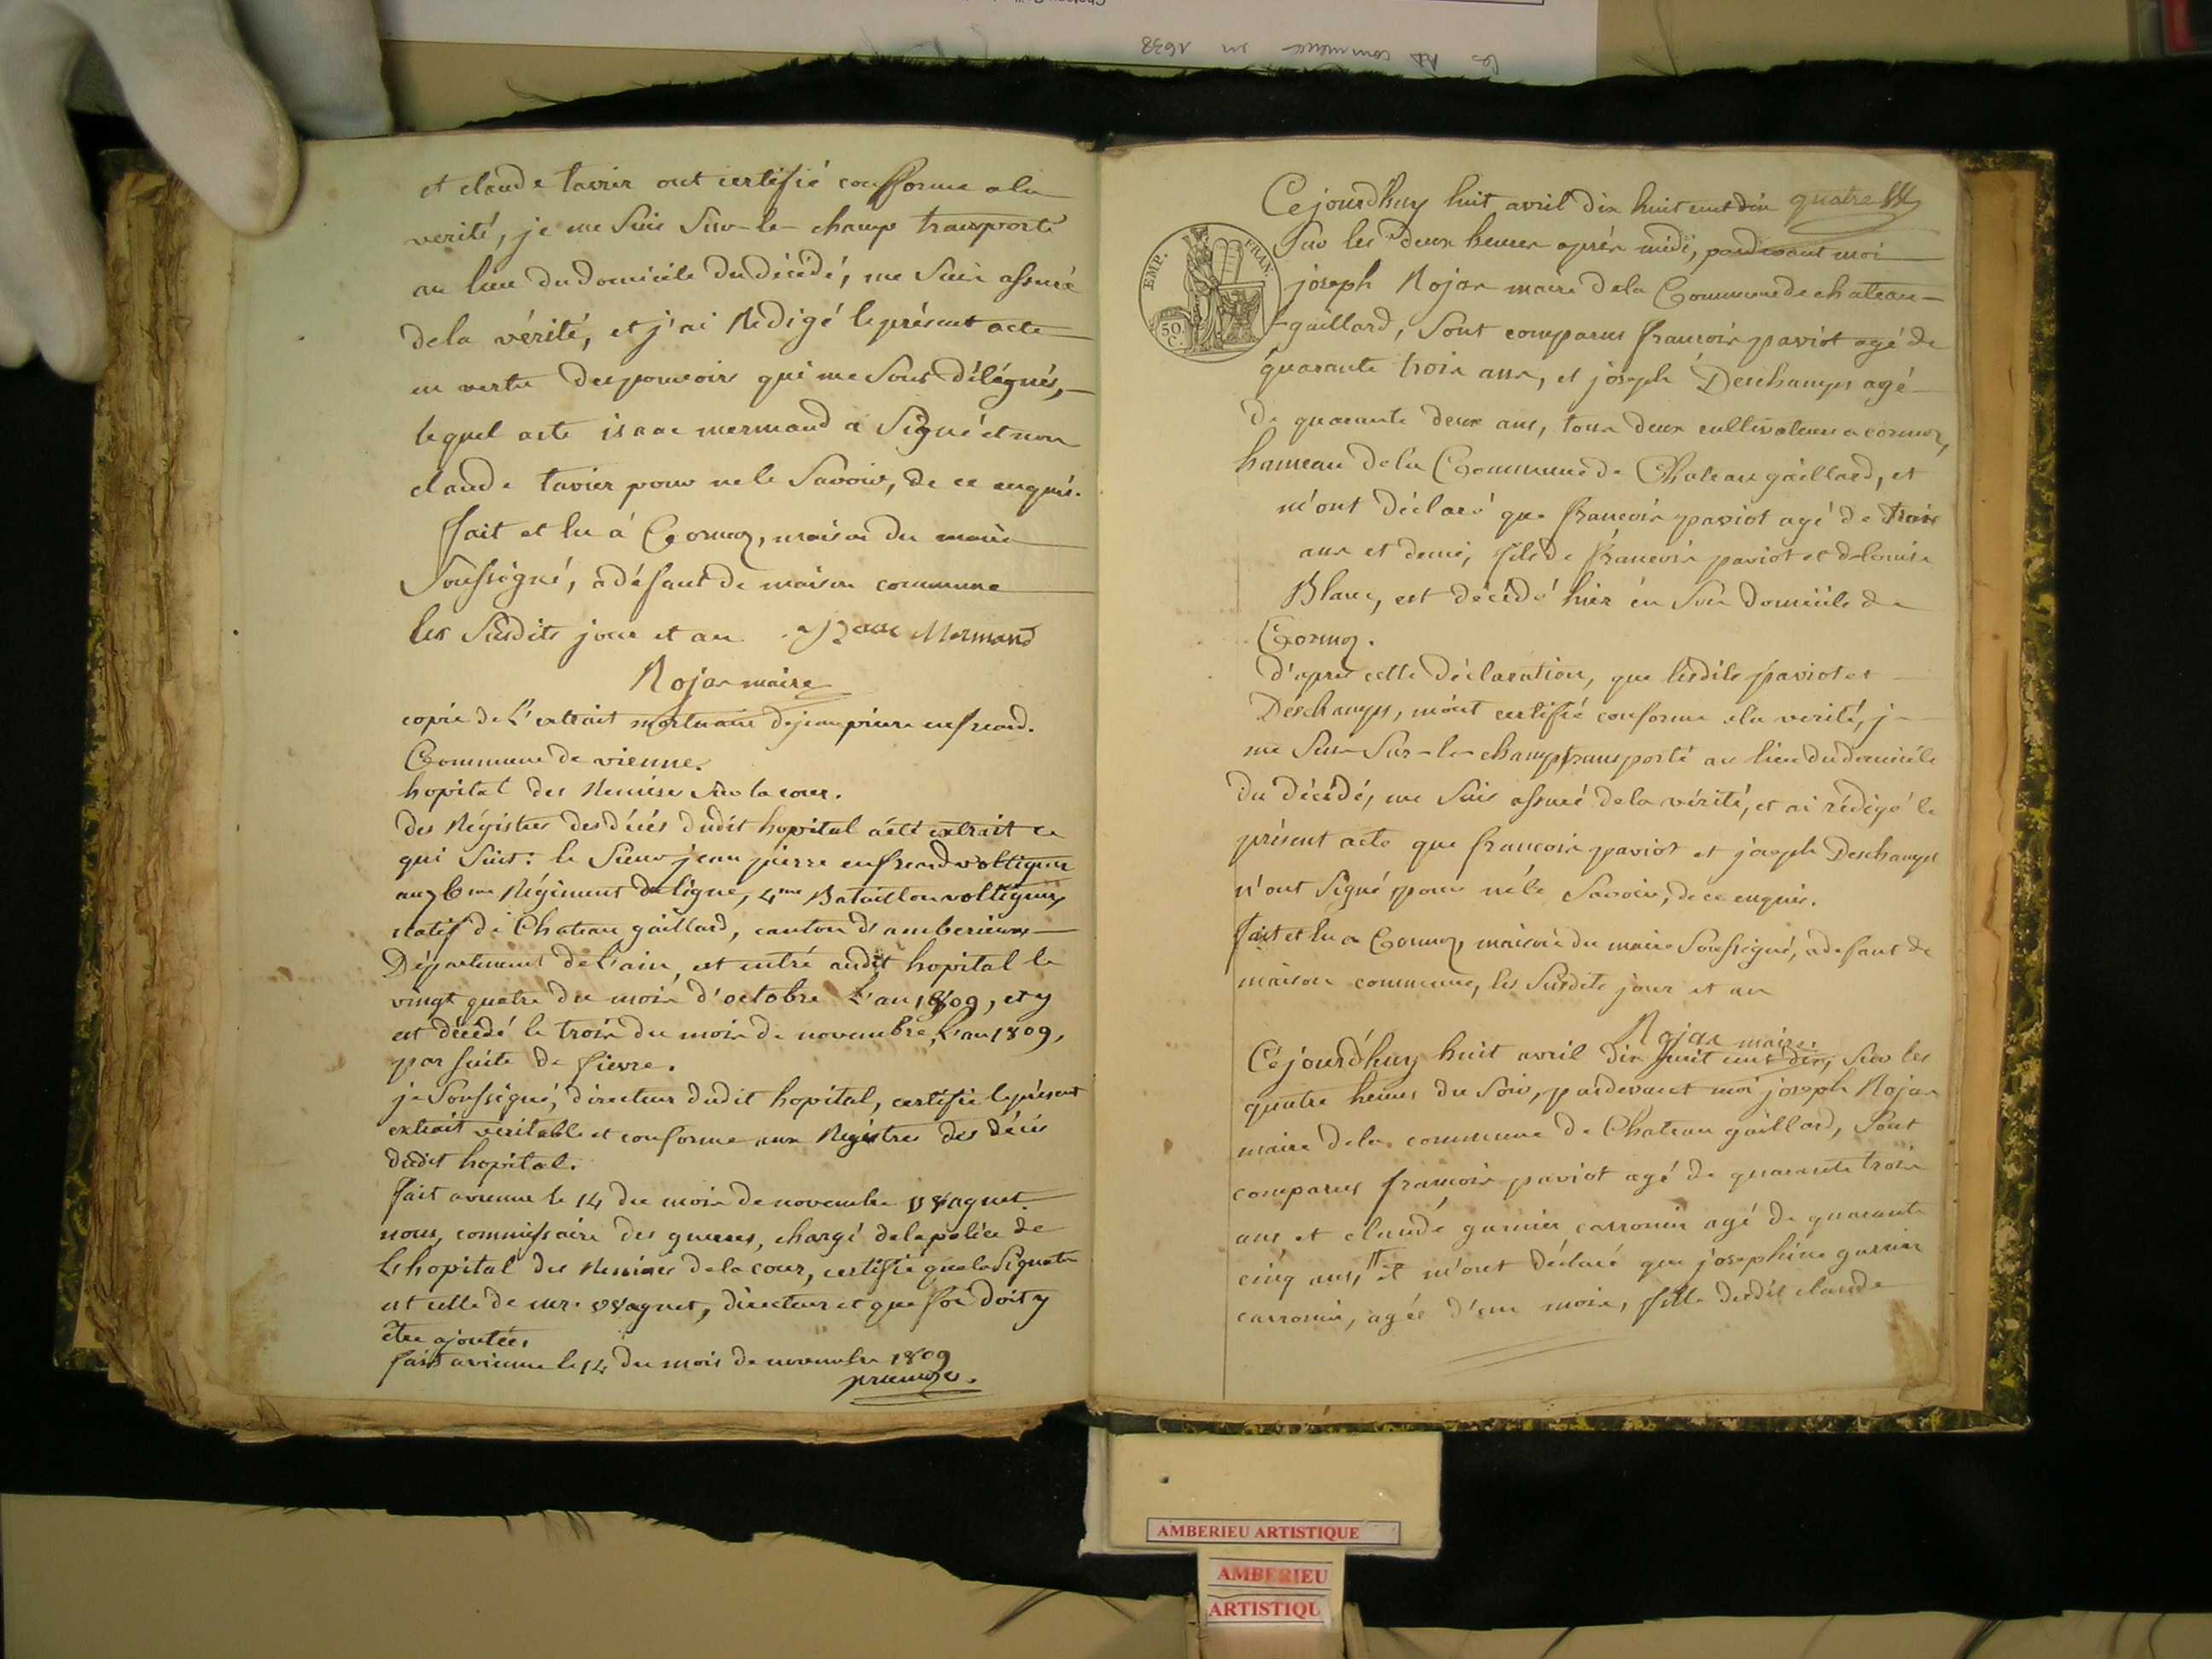 la commence en 1638
et claude tavier ont certifié conforme a la
verité, je me suis sur-le-champ transporté
au lieu du domicile du décédé, me suis assuré
de la vérité, et j'ai Redigé le présent acte
en vertu des pouvoirs qui me sont délégués,
lequel acte isaac mermand a signé et non
claude tavier pour ne le savoir, de ce enquis.
fait et lu á Cormoz, maison du maire
soussigné, a défaut de maison commune
les susdits jour et an. Isaac Mermand
Rojas maire
copie de L'extrait mortuaire de jean pierre enfreard.
Commune de vienne.
hopital des Remises sur la cour.
des Régistres des décés dudit hopital a été extrait ce
qui suit: le sieur jean pierre enfreard voltigeur
au 76me Régiment de ligne, 4me Bataillon voltigeurs
natif de Chateau gaillard, canton d'amberieux
Département de l'ain, est entré audit hopital le
vingt quatre du mois d'octobre L'an 1809, et y
est décédé le trois du mois de novembre, L'an 1809,
par suite de fievre.
je soussigné, directeur dudit hopital, certifie le présent
extrait véritable et conforme aux Régistres des décés
dudit hopital.
fait a vienne le 14 du mois de novembre wagnet.
nous, commissaire des guerres, chargé de la police de
L'hopital des Remises de la cour, certifie que la signature
est celle de mr. wagnet, directeur et que foi doit y
être ajoutée,
fait a vienne le 14 du mois de novembre 1809
quatre
Cejourd'huy huit avril dix huit cent dix
EMP. FRAN.
50. C.
sur les deux heures aprés midi, pardevant moi
joseph Rojas maire de la Commune de chateau-
gaillard, sont comparus francois paviot agé de
quarante trois ans, et joseph Deschamps agé
de quarante deux ans, tous deux cultivateurs a cormoz,
hameau de la Commune de Chateau gaillard, et
m'ont déclaré que francois paviot agé de trois
ans et demi, fils de francois paviot et de louise
Blanc, est décédé hier en son domicile de
Cormoz.
d'aprés cette déclaration, que lesdits paviot et
Deschamps, m'ont certifié conforme a la verité, je
me suis sur-le-champ transporté au lieu du domicile
du décédé, me suis assuré de la vérité, et ai rédigé le
présent acte que francois paviot et joseph Deschamps
n'ont signé pour ne le savoir, de ce enquis.
fait et lu a Cormoz, maison du maire soussigné, a defaut de
maison commune, les susdits jour et an
Rojas maire.
Cejourd'huy huit avril dix huit cent dix, sur les
quatre heures du soir, pardevant moi joseph Rojas
maire de la commune de Chateau gaillard, sont
comparus francois paviot agé de quarante trois
ans et claude garnier carronier agé de quarante
cinq ans, et m'ont déclaré que josephine garnier
carronier, agée d'un mois, fille dudit claude
AMBERIEU ARTISTIQUE
AMBERIEU
ARTISTIQU